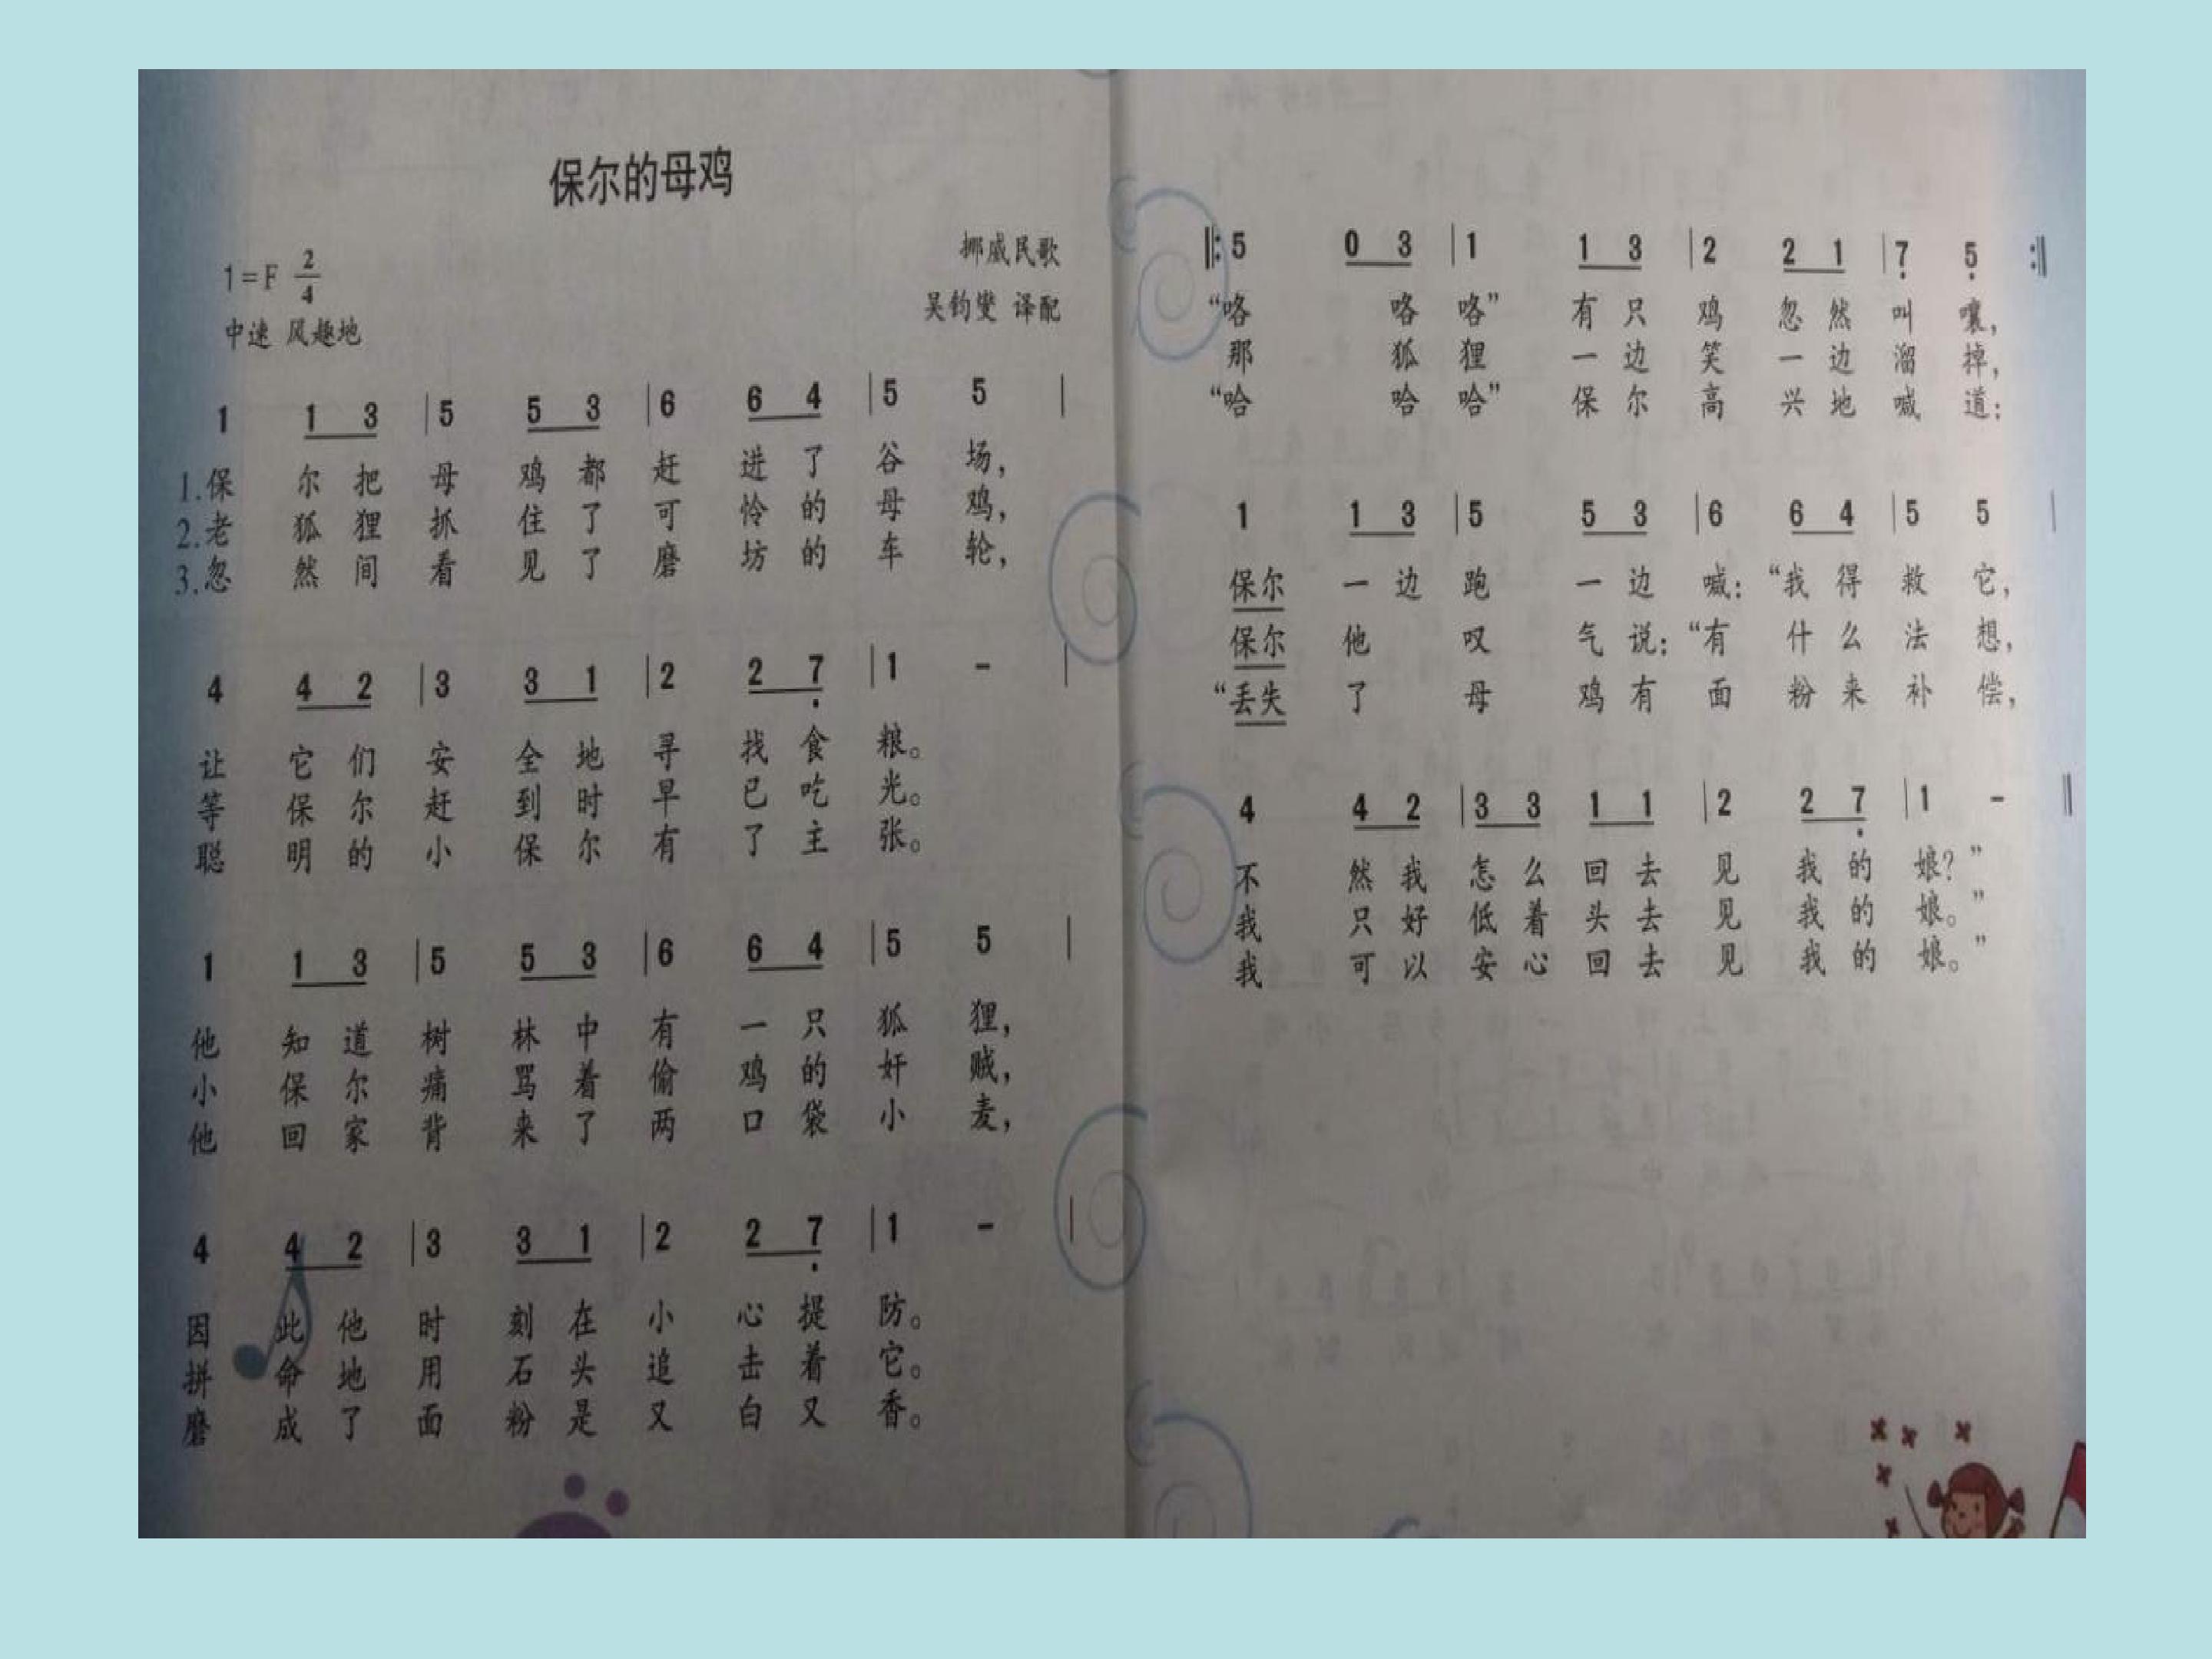 保尔的母鸡
1=F 2/4
中速 风趣地
挪威民歌
吴钧燮 译配
1 1 3 | 5 5 3 | 6 6 4 | 5 5 |
1.保 尔 把 母 鸡 都 赶 进 了 谷 场,
2.老 狐 狸 抓 住 了 可 怜 的 母 鸡,
3.忽 然 间 看 见 了 磨 坊 的 车 轮,
4 4 2 | 3 3 1 | 2 2 7̣ | 1 - |
让 它 们 安 全 地 寻 找 食 粮。
等 保 尔 赶 到 时 早 已 吃 光。
聪 明 的 小 保 尔 有 了 主 张。
1 1 3 | 5 5 3 | 6 6 4 | 5 5 |
他 知 道 树 林 中 有 一 只 狐 狸,
小 保 尔 痛 骂 着 偷 鸡 的 奸 贼,
他 回 家 背 来 了 两 口 袋 小 麦,
4 4 2 | 3 3 1 | 2 2 7̣ | 1 - |
因 此 他 时 刻 在 小 心 提 防。
拼 命 地 用 石 头 追 击 着 它。
磨 成 了 面 粉 是 又 白 又 香。
‖: 5 0 3 | 1 1 3 | 2 2 1 | 7̣ 5̣ :‖
“咯 咯 咯” 有 只 鸡 忽 然 叫 嚷,
那 狐 狸 一 边 笑 一 边 溜 掉,
“哈 哈 哈” 保 尔 高 兴 地 喊 道:
1 1 3 | 5 5 3 | 6 6 4 | 5 5 |
保尔 一 边 跑 一 边 喊: “我 得 救 它,
保尔 他 叹 气 说: “有 什 么 法 想,
“丢失 了 母 鸡 有 面 粉 来 补 偿,
4 4 2 | 3 3 1 1 | 2 2 7̣ | 1 - ‖
不 然 我 怎 么 回 去 见 我 的 娘?”
我 只 好 低 着 头 去 见 我 的 娘。”
我 可 以 安 心 回 去 见 我 的 娘。”